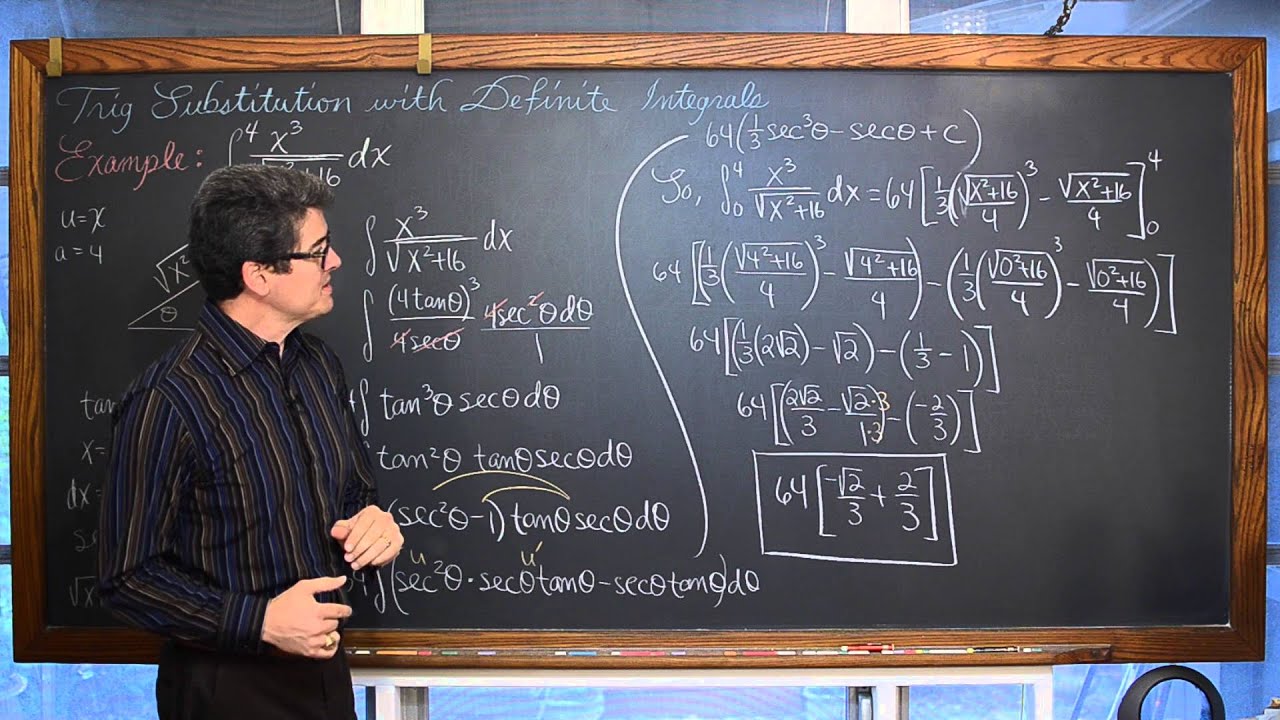 Trig Substitution with Definite Integrals
Example: ∫ 4 x³/√x²+16 dx
u=x
a=4
√x²
θ
tan
x=
dx=
se
√x
∫ x³/√x²+16 dx
∫ (4tanθ)³/4secθ 4sec²θdθ/1
∫ tan³θ secθdθ
tan²θ tanθsecθdθ
(sec²θ-1)tanθsecθdθ
u u'
∫(sec²θ·secθtanθ-secθtanθ)dθ
64(⅓sec³θ-secθ+c)
So, ∫₀⁴ x³/√x²+16 dx=64[⅓(√x²+16/4)³-√x²+16/4]₀⁴
64[⅓(√4²+16/4)³-√4²+16/4)-(⅓(√0²+16/4)³-√0²+16/4)]
64[(⅓(2√2)-√2)-(⅓-1)]
64[(2√2/3-√2·3/1·3)-(-2/3)]
64[-√2/3+2/3]